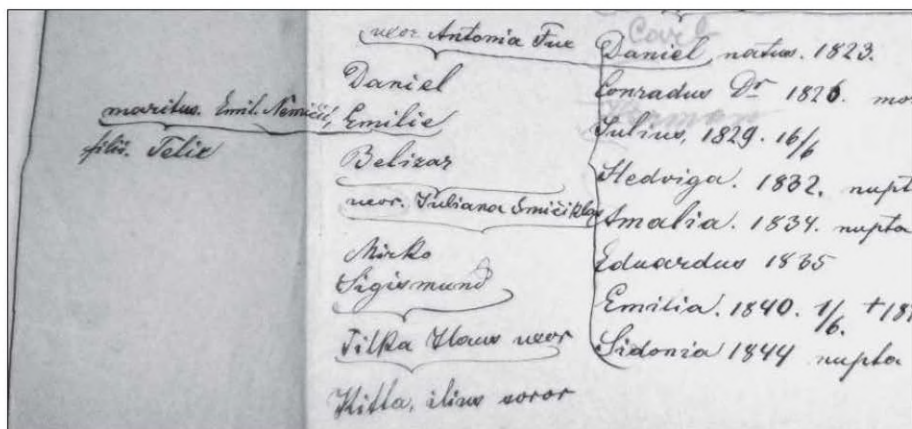 maritus. Emil. Nemičić,
filii. Felix
uxor Antonia Fux
Daniel
Emilie
Belizar
uxor. Juliana Smičiklas
Mirko
Sigismund
Tilka Klaus uxor
Kitta, ilius soror
Carl
Daniel natus. 1823.
Conradus Dr 1826.
Herman
Julius, 1829. 16/6
Hedviga. 1832. nupt
Amalia. 1834. nupta
Eduardus 1835
Emilia. 1840. 1/6. +18
Sidonia 1844 nupta